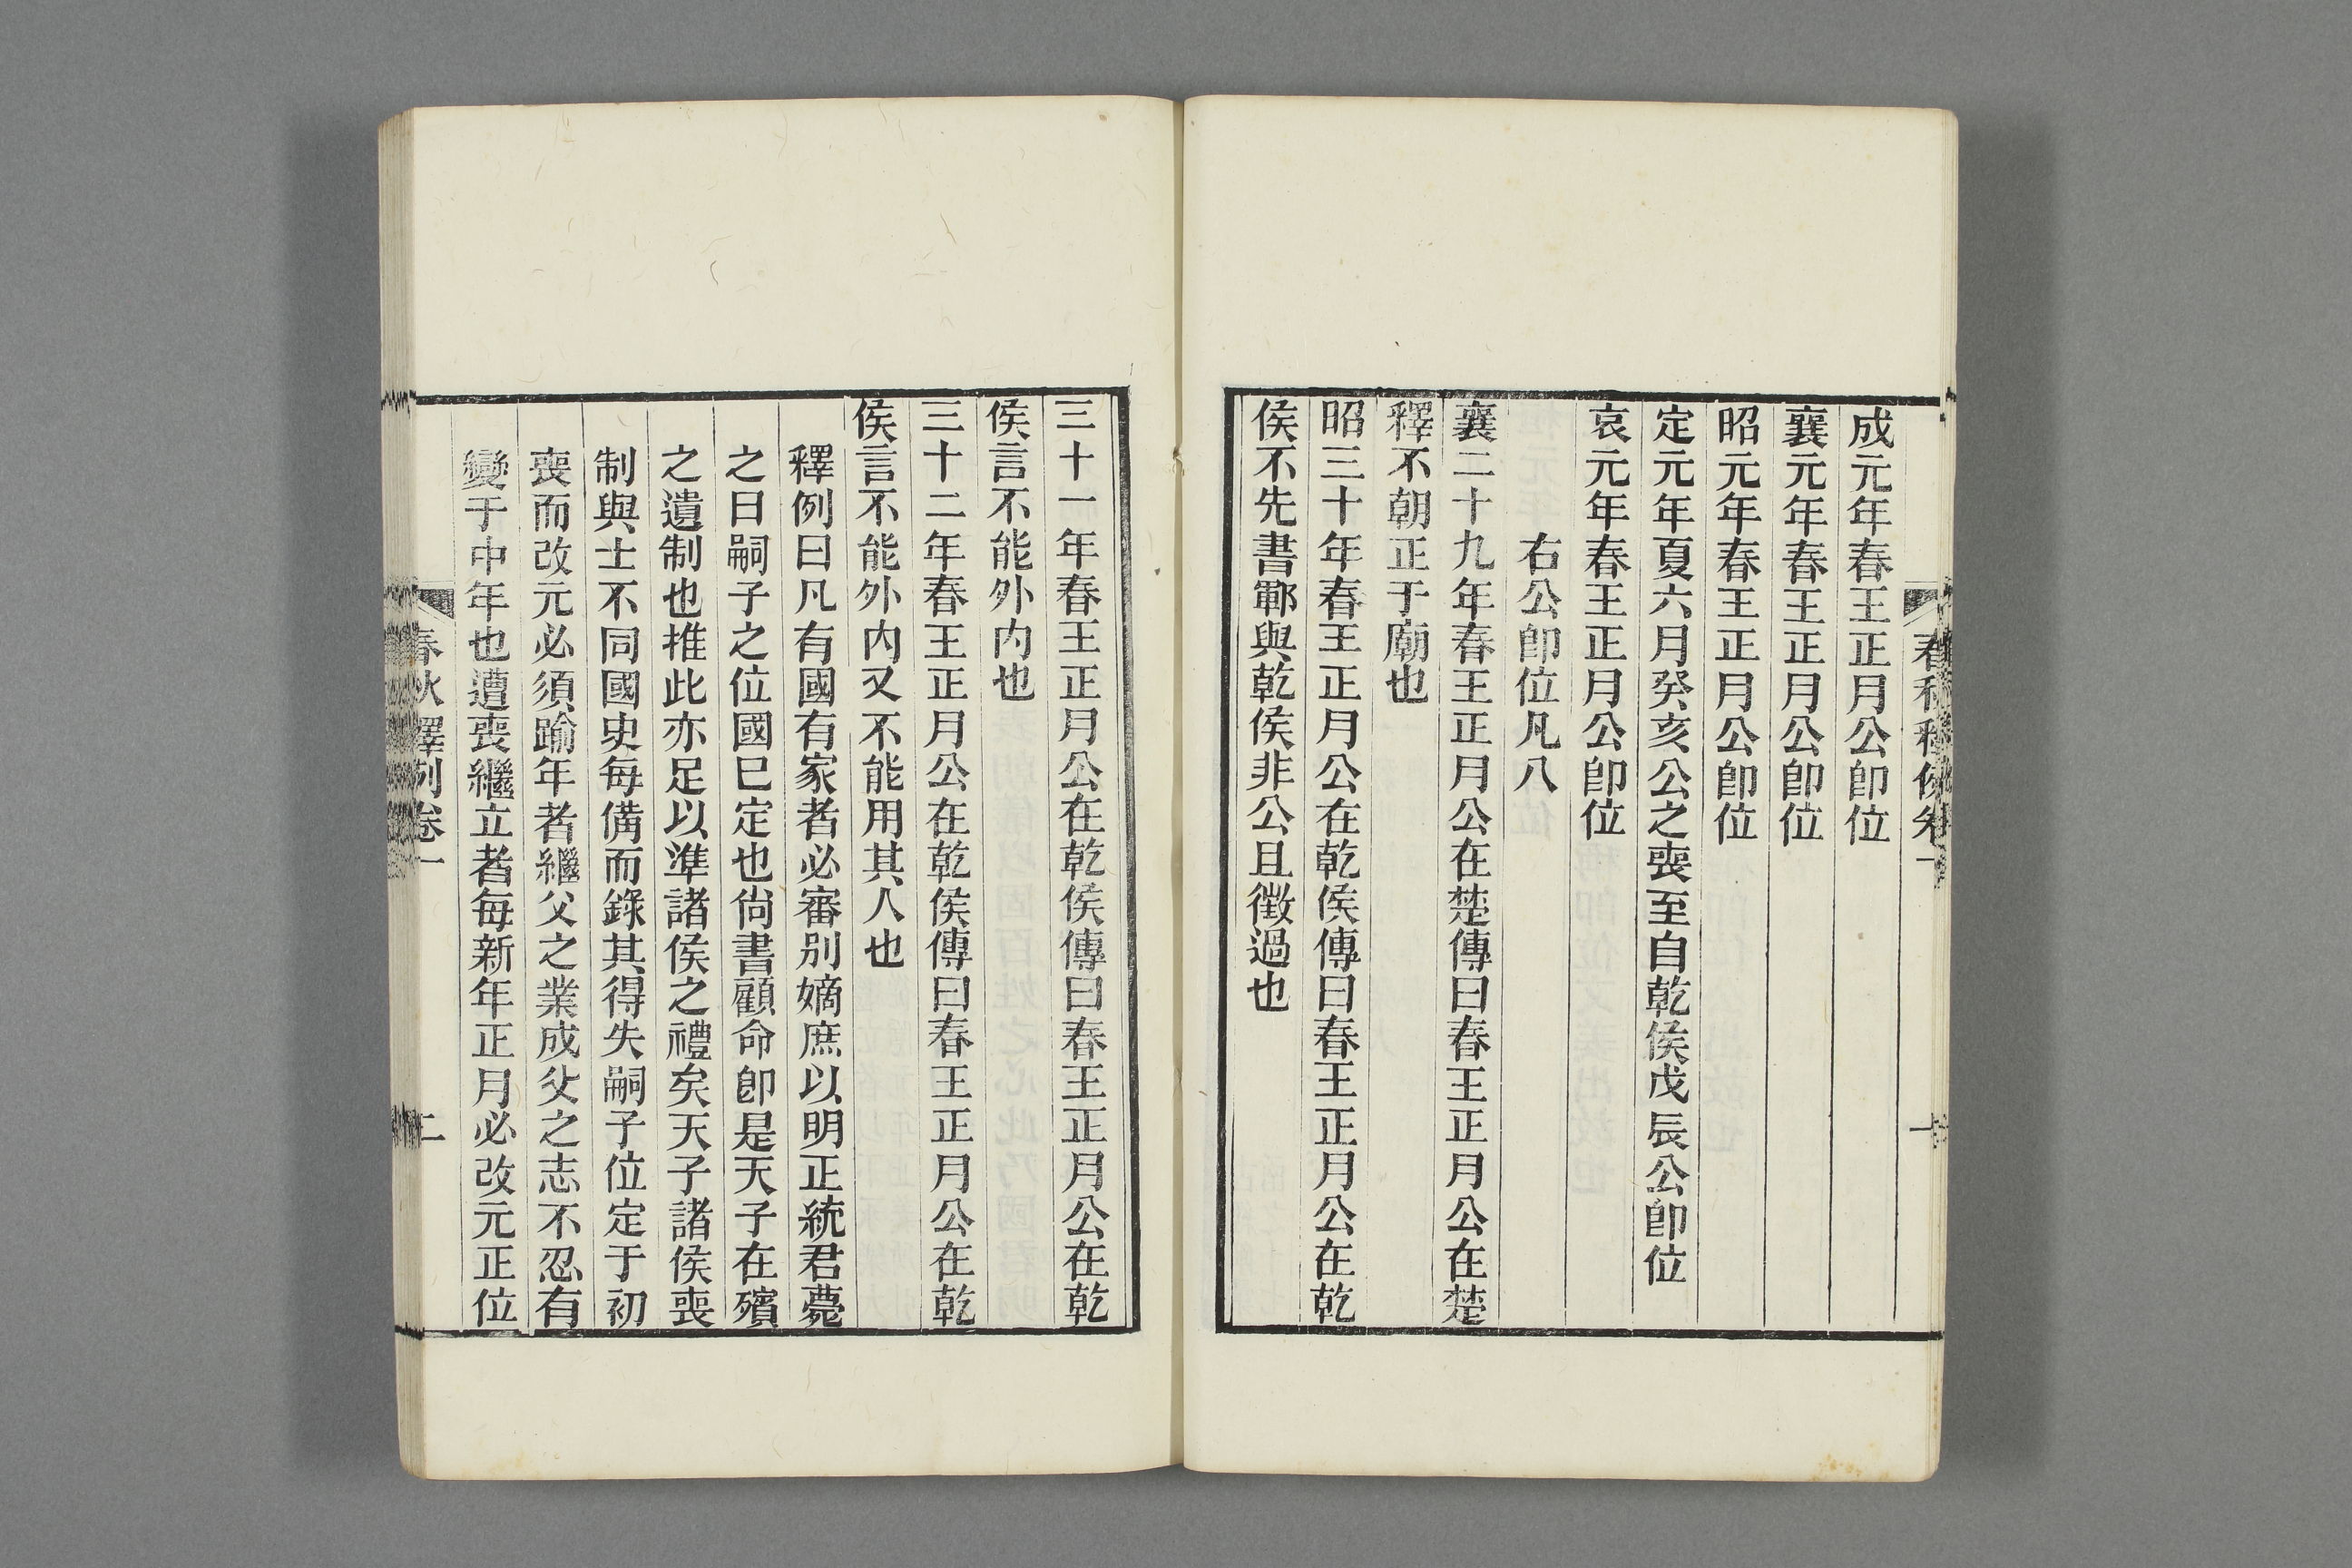 春秋釋例卷一
成元年春王正月公卽位
襄元年春王正月公卽位
昭元年春王正月公卽位
定元年夏六月癸亥公之喪至自乾侯戊辰公卽位
哀元年春王正月公卽位
右公卽位凡八
襄二十九年春王正月公在楚傳曰春王正月公在楚
釋不朝正于廟也
昭三十年春王正月公在乾侯傳曰春王正月公在乾
侯不先書鄆與乾侯非公且徵過也
三十一年春王正月公在乾侯傳曰春王正月公在乾
侯言不能外內也
三十二年春王正月公在乾侯傳曰春王正月公在乾
侯言不能外內又不能用其人也
釋例曰凡有國有家者必審別嫡庶以明正統君薨
之日嗣子之位國已定也尙書顧命卽是天子在殯
之遺制也推此亦足以準諸侯之禮矣天子諸侯喪
制與士不同國史每備而錄其得失嗣子位定于初
喪而改元必須踰年者繼父之業成父之志不忍有
變于中年也遭喪繼立者每新年正月必改元正位
春秋釋例卷一
二